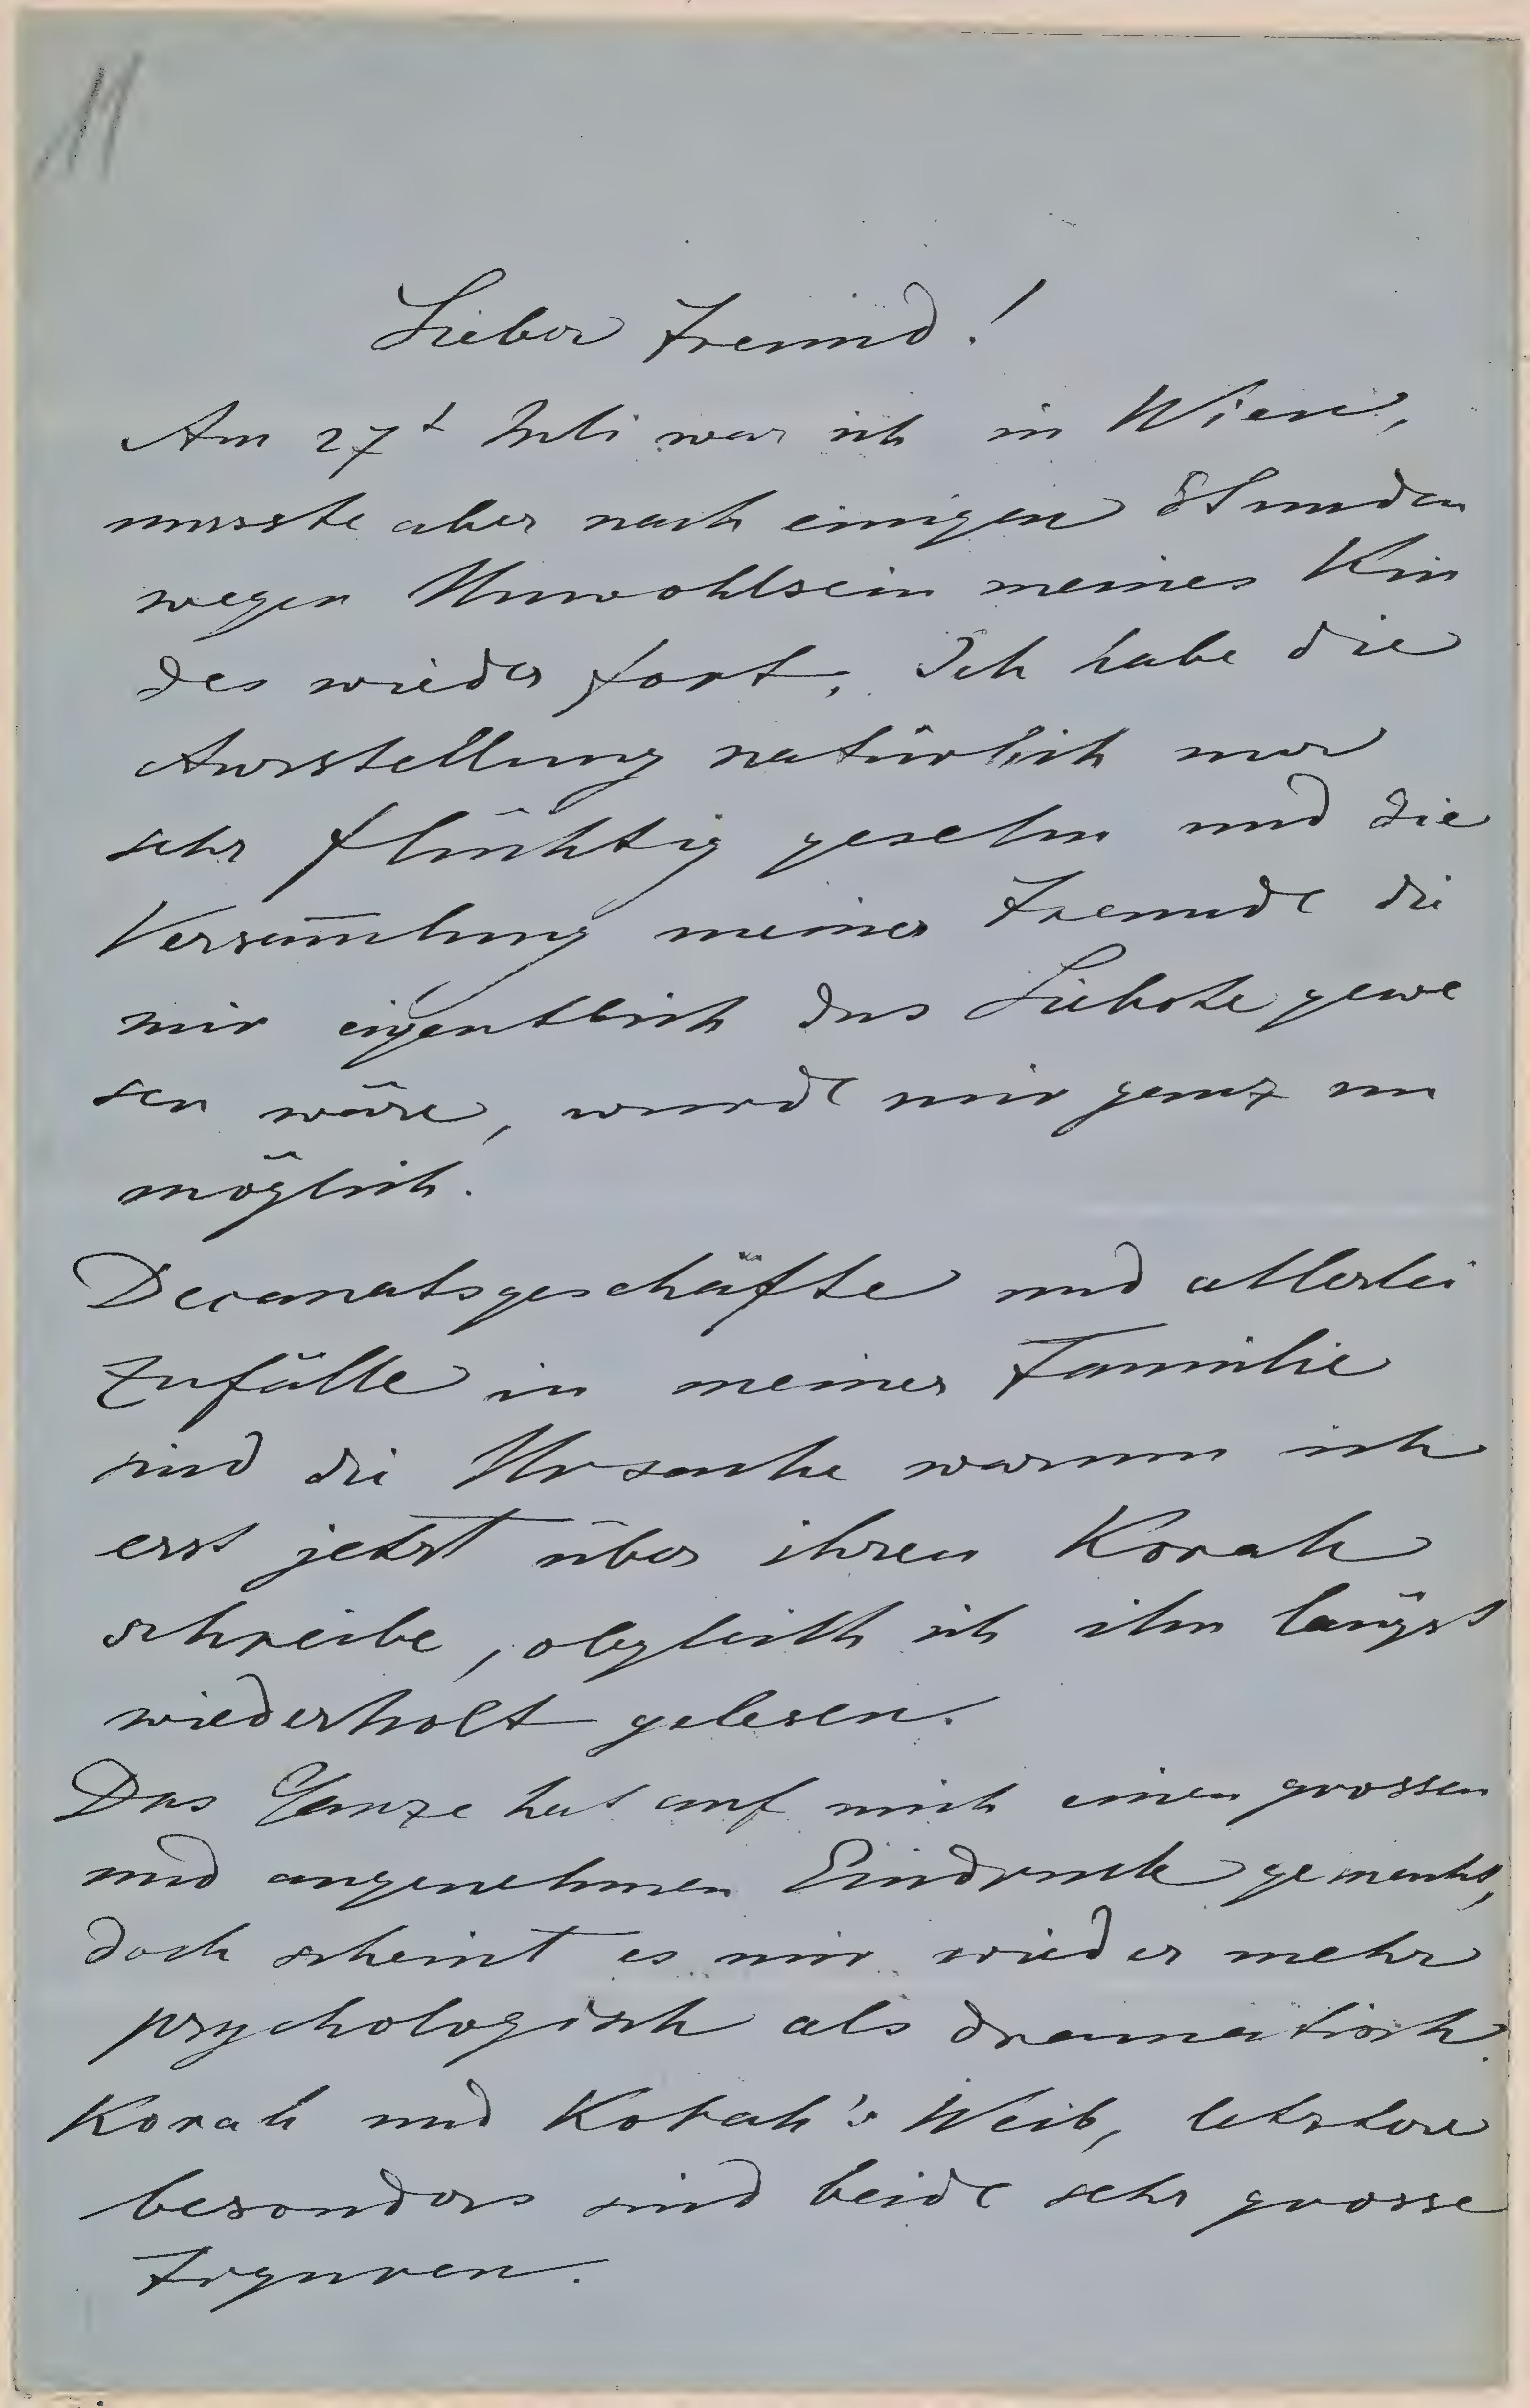 11
Lieber Freund!
Am 27t Juli war ich in Wien,
musste aber nach einigen Stunden
wegen Unwohlsein meines Kin
des wieder fort. Ich habe die
Ausstellung natürlich nur
sehr flüchtig gesehn und die
Versam̅lung meiner Freunde die
mir eigentlich das Liebste gewe
sen wäre, wurde mir ganz un
möglich.
Decanatsgeschäfte und allerlei
Zufälle in meiner Familie
sind die Ursache warum ich
erst jetzt über ihren Korah
schreibe, obgleich ich ihn längst
wiederholt gelesen.
Das Ganze hat auf mich einen grossen
und angenehmen Eindruck gemacht,
doch scheint es mir wieder mehr
psychologisch als dramatisch.
Korah und Korah's Weib, letztere
besonders sind beide sehr grosse
Figuren.